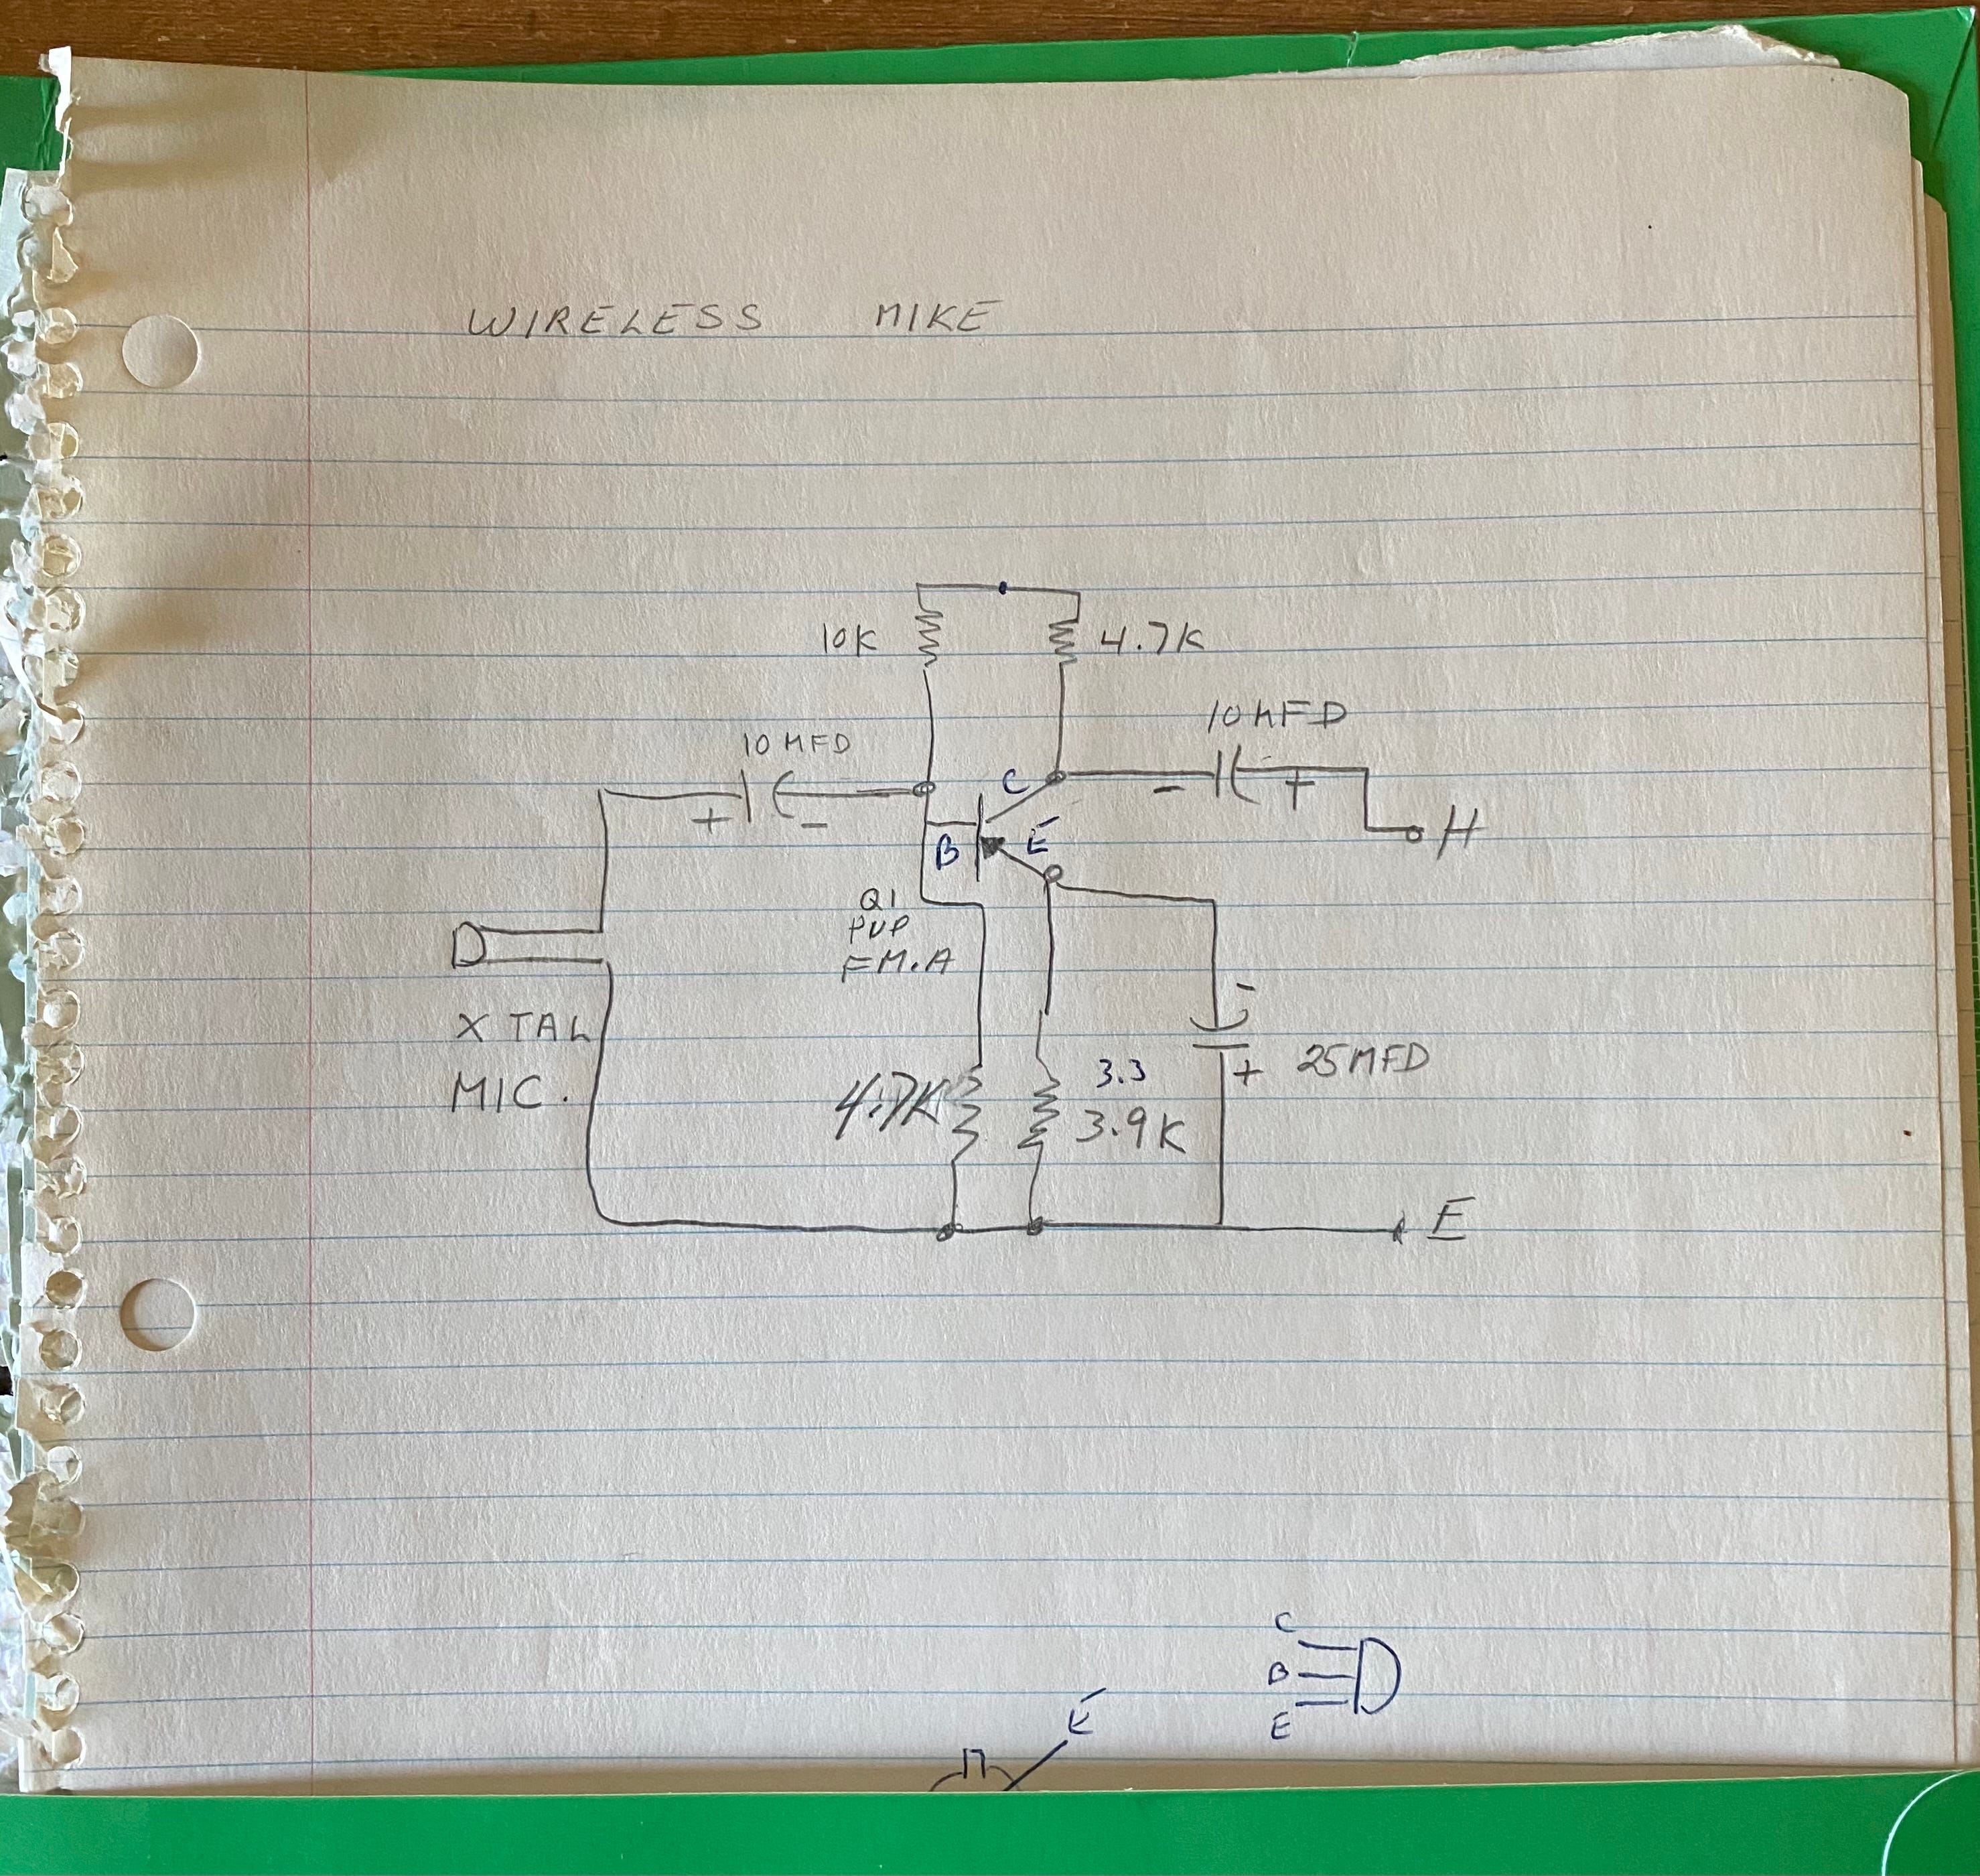 WIRELESS MIKE
10K
4.7K
10 MFD
10 MFD
+ -
C
- +
H
B
E
Q1
PNP
FM.A
X TAL
MIC.
-
+
25 MFD
4.7K
3.3
3.9K
E
C
B
E
E